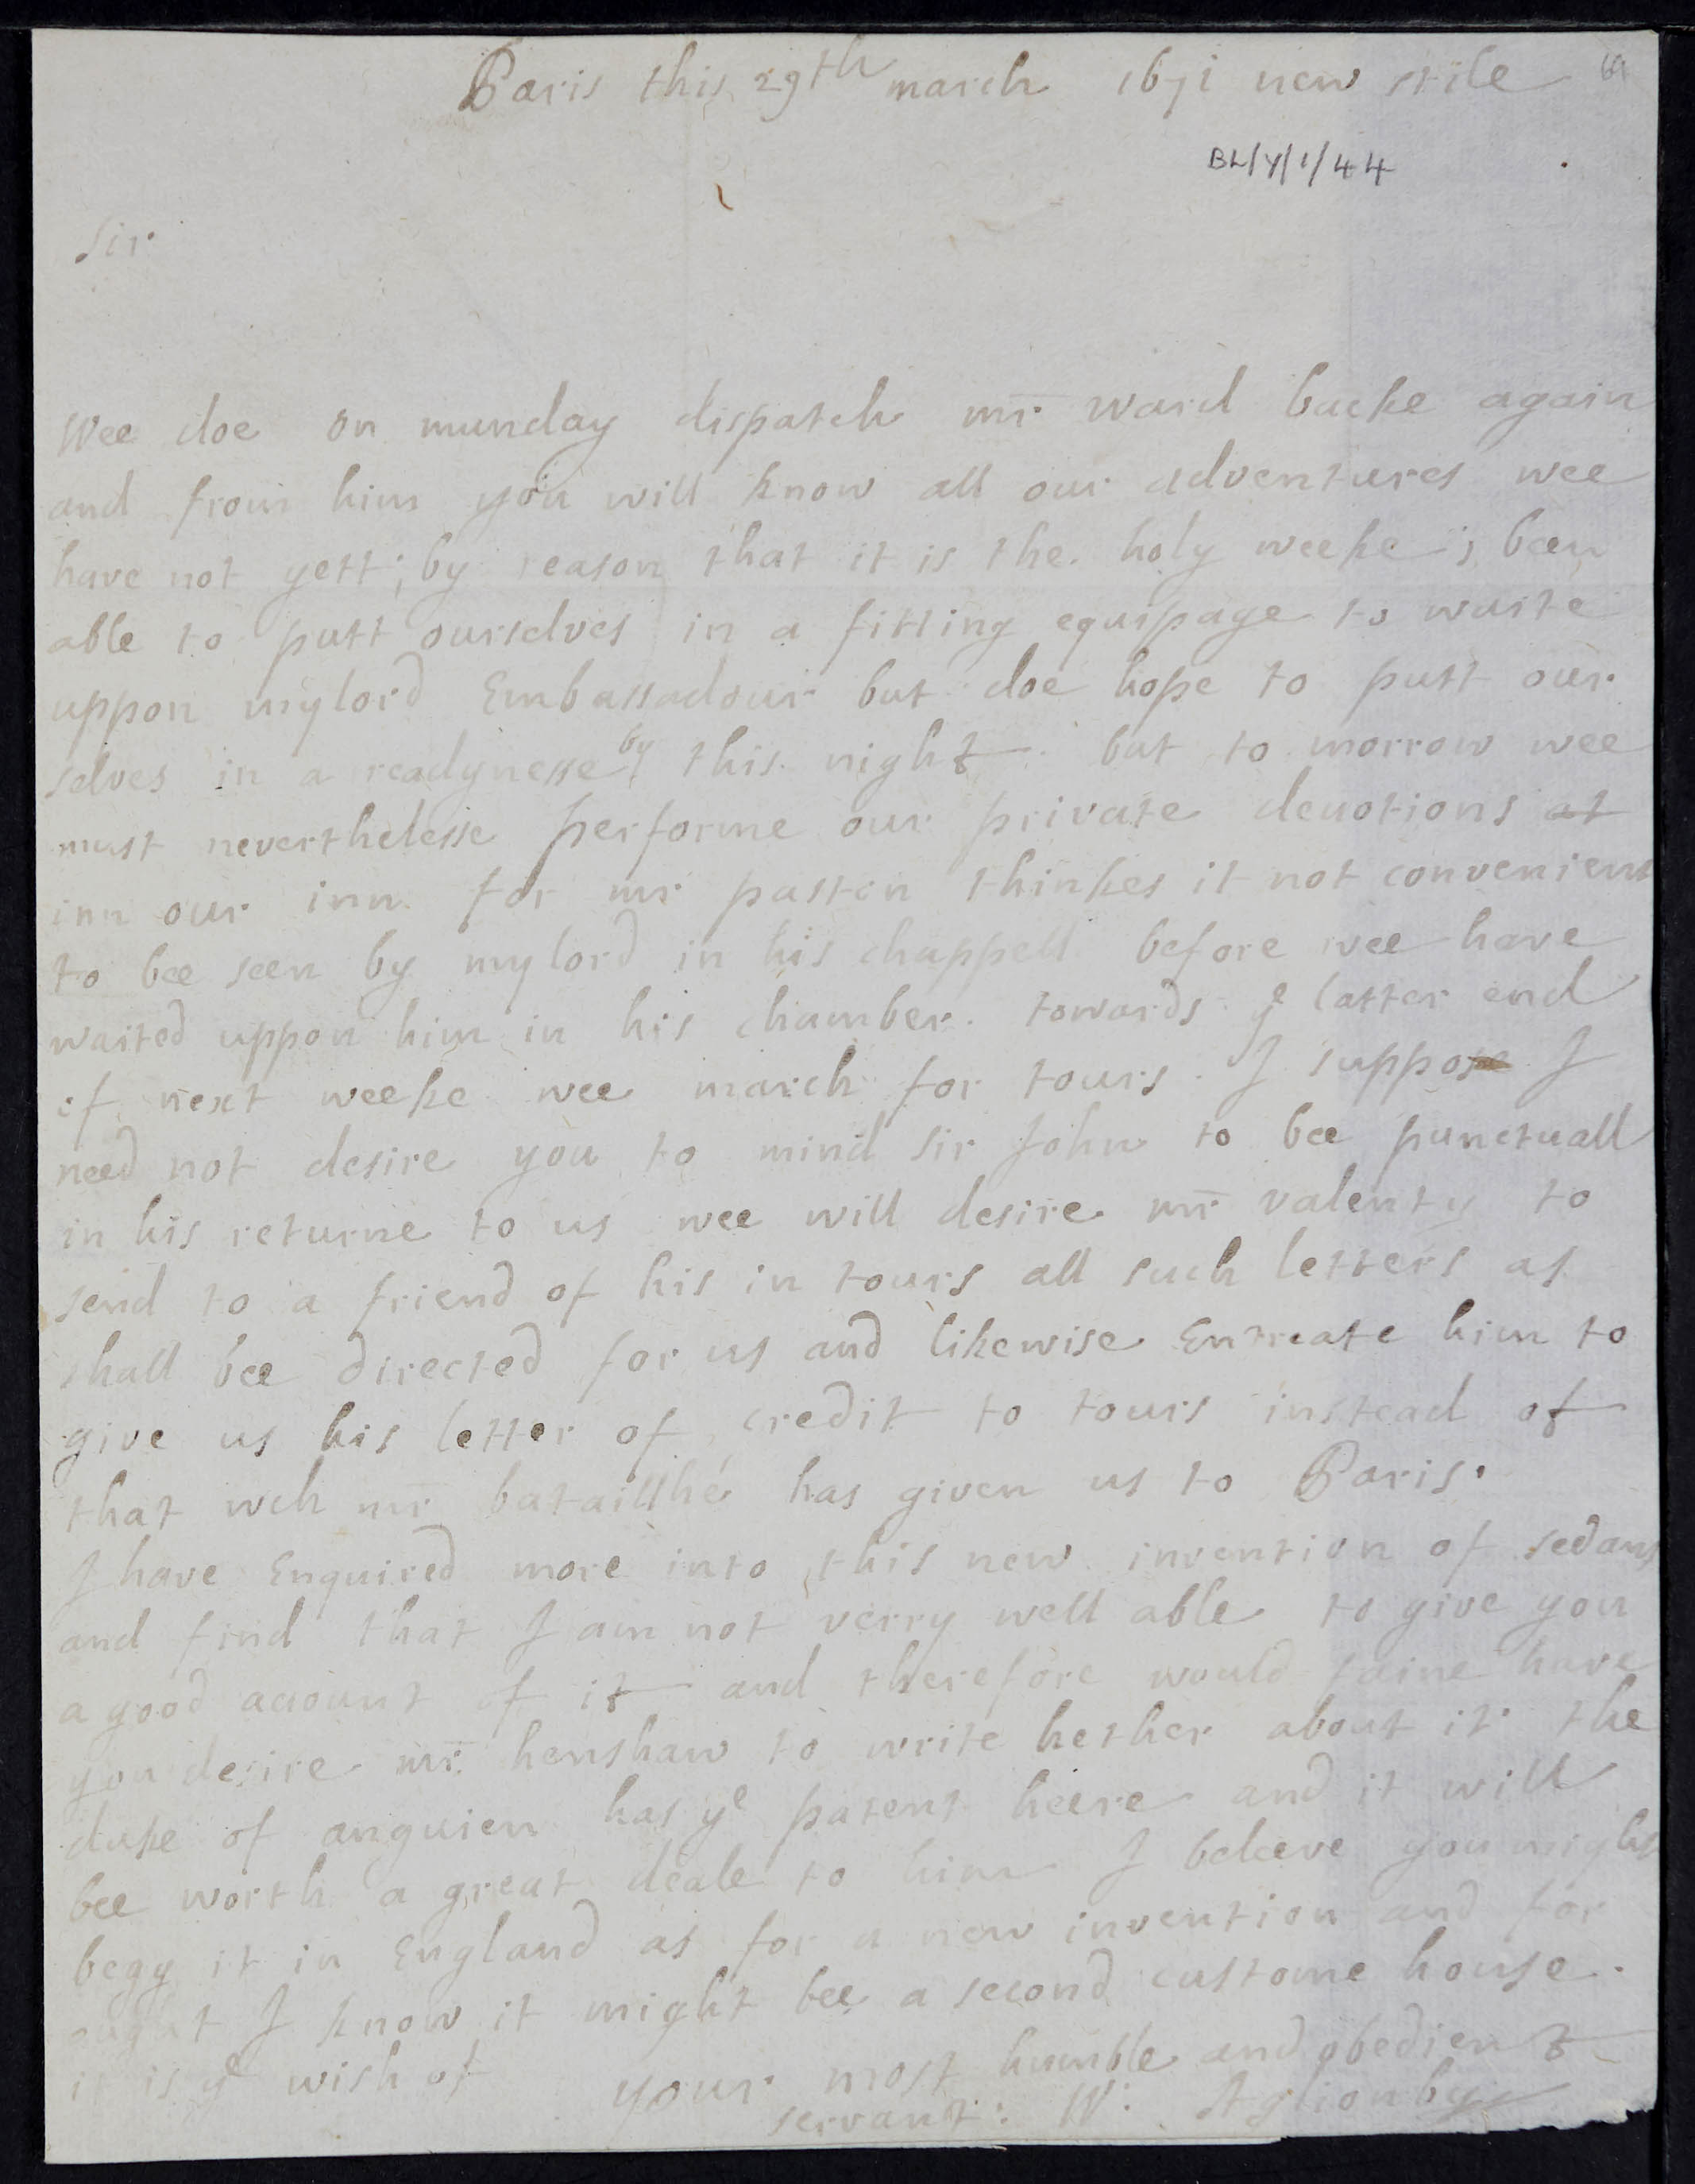 Paris this 29th march 1671 new stile
BL/Y/1/44
Sir
Wee doe on munday dispatch mr ward backe again
and from him you will know all our adventures wee
have not yett; by reason that it is the holy weeke; been
able to putt ourselves in a fitting equipage to waite
uppon mylord Embassadour but doe hope to putt our
selves in a readynesse by this night but to morrow wee
must neverthelesse performe our private devotions at
inn our inn for mr paston thinkes it not convenient
to bee seen by mylord in his chappell before wee have
waited uppon him in his chamber. towards ye latter end
of next weeke wee march for tours. I suppose I
need not desire you to mind Sir John to bee punctuall
in his returne to us wee will desire mr valenty to
send to a friend of his in tours all such letters as
shall bee directed for us and likewise Entreate him to
give us his letter of credit to tours instead of
that wch mr bataillhé has given us to Paris.
I have Enquired more into this new invention of sedans
and find that I am not verry well able to give you
a good acount of it and therefore would faine have
you desire mr henshaw to write hether about it. the
duke of anguien has ye patent heere and it will
bee worth a great deale to him I beleeve you might
begg it in England as for a new invention and for
ought I know it might bee a second custome house.
it is ye wish of your most humble and obedient
servant: W: Aglionby